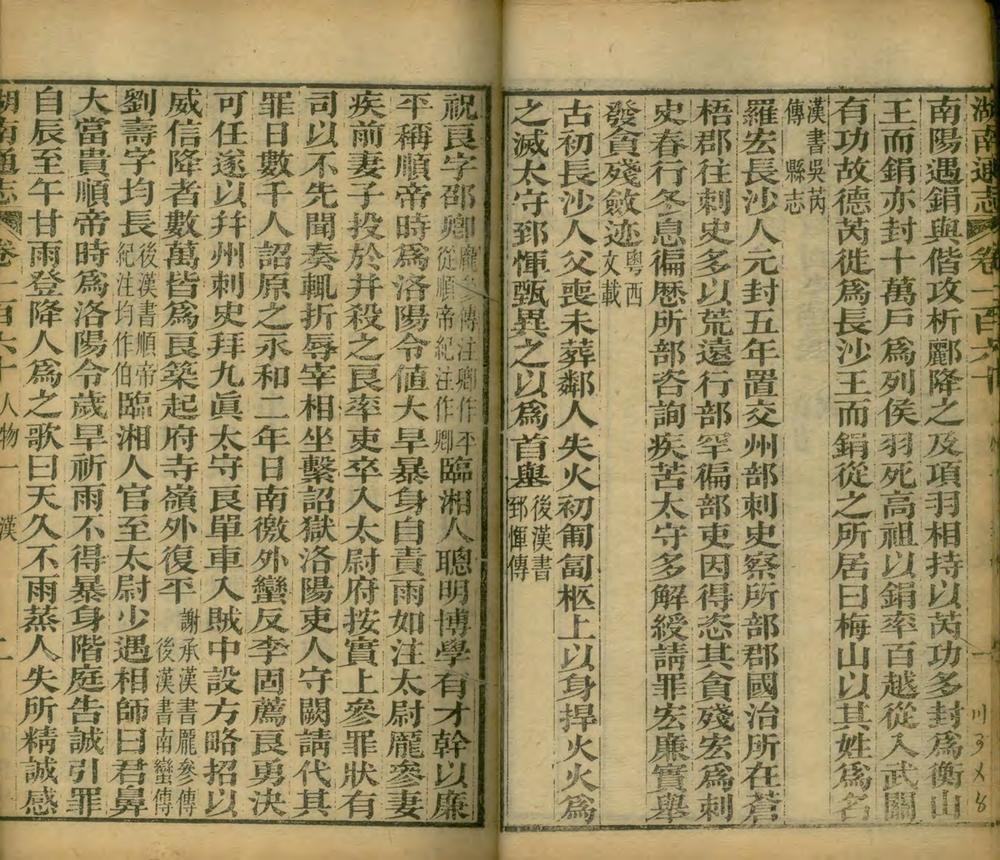 湖南通志 卷一百六十
南陽遇鋗與偕攻析酈降之及項羽相持以芮功多封爲衡山
王而鋗亦封十萬戶爲列侯羽死高祖以鋗率百越從入武關
有功故德芮徙爲長沙王而鋗從之所居曰梅山以其姓爲名
漢書吳芮
傳 縣志
羅宏長沙人元封五年置交州部刺史察所部郡國治所在蒼
梧郡往刺史多以荒遠行部罕徧部吏因得恣其貪殘宏爲刺
史春行冬息徧歷所部咨詢疾苦太守多解綬請罪宏廉實舉
發貪殘斂迹粵西
文載
古初長沙人父喪未葬鄰人失火初匍匐柩上以身捍火火爲
之滅太守郅惲甄異之以爲首舉後漢書
郅惲傳
祝良字邵卿龐參傳注卿作平
從順帝紀注作卿臨湘人聰明博學有才幹以廉
平稱順帝時爲洛陽令値大旱暴身自責雨如注太尉龐參妻
疾前妻子投於井殺之良率吏卒入太尉府按實上參罪狀有
司以不先聞奏輒折辱宰相坐繫詔獄洛陽吏人守闕請代其
罪日數千人詔原之永和二年日南徼外蠻反李固薦良勇決
可任遂以幷州刺史拜九眞太守良單車入賊中設方略招以
威信降者數萬皆爲良築起府寺嶺外復平謝承漢書龐參傳
後漢書南蠻傳
劉壽字均長後漢書順帝
紀注均作伯臨湘人官至太尉少遇相師曰君鼻
大當貴順帝時爲洛陽令歲旱祈雨不得暴身階庭告誠引罪
自辰至午甘雨登降人爲之歌曰天久不雨蒸人失所精誠感
湖南通志 卷一百六十 人物一 漢 二